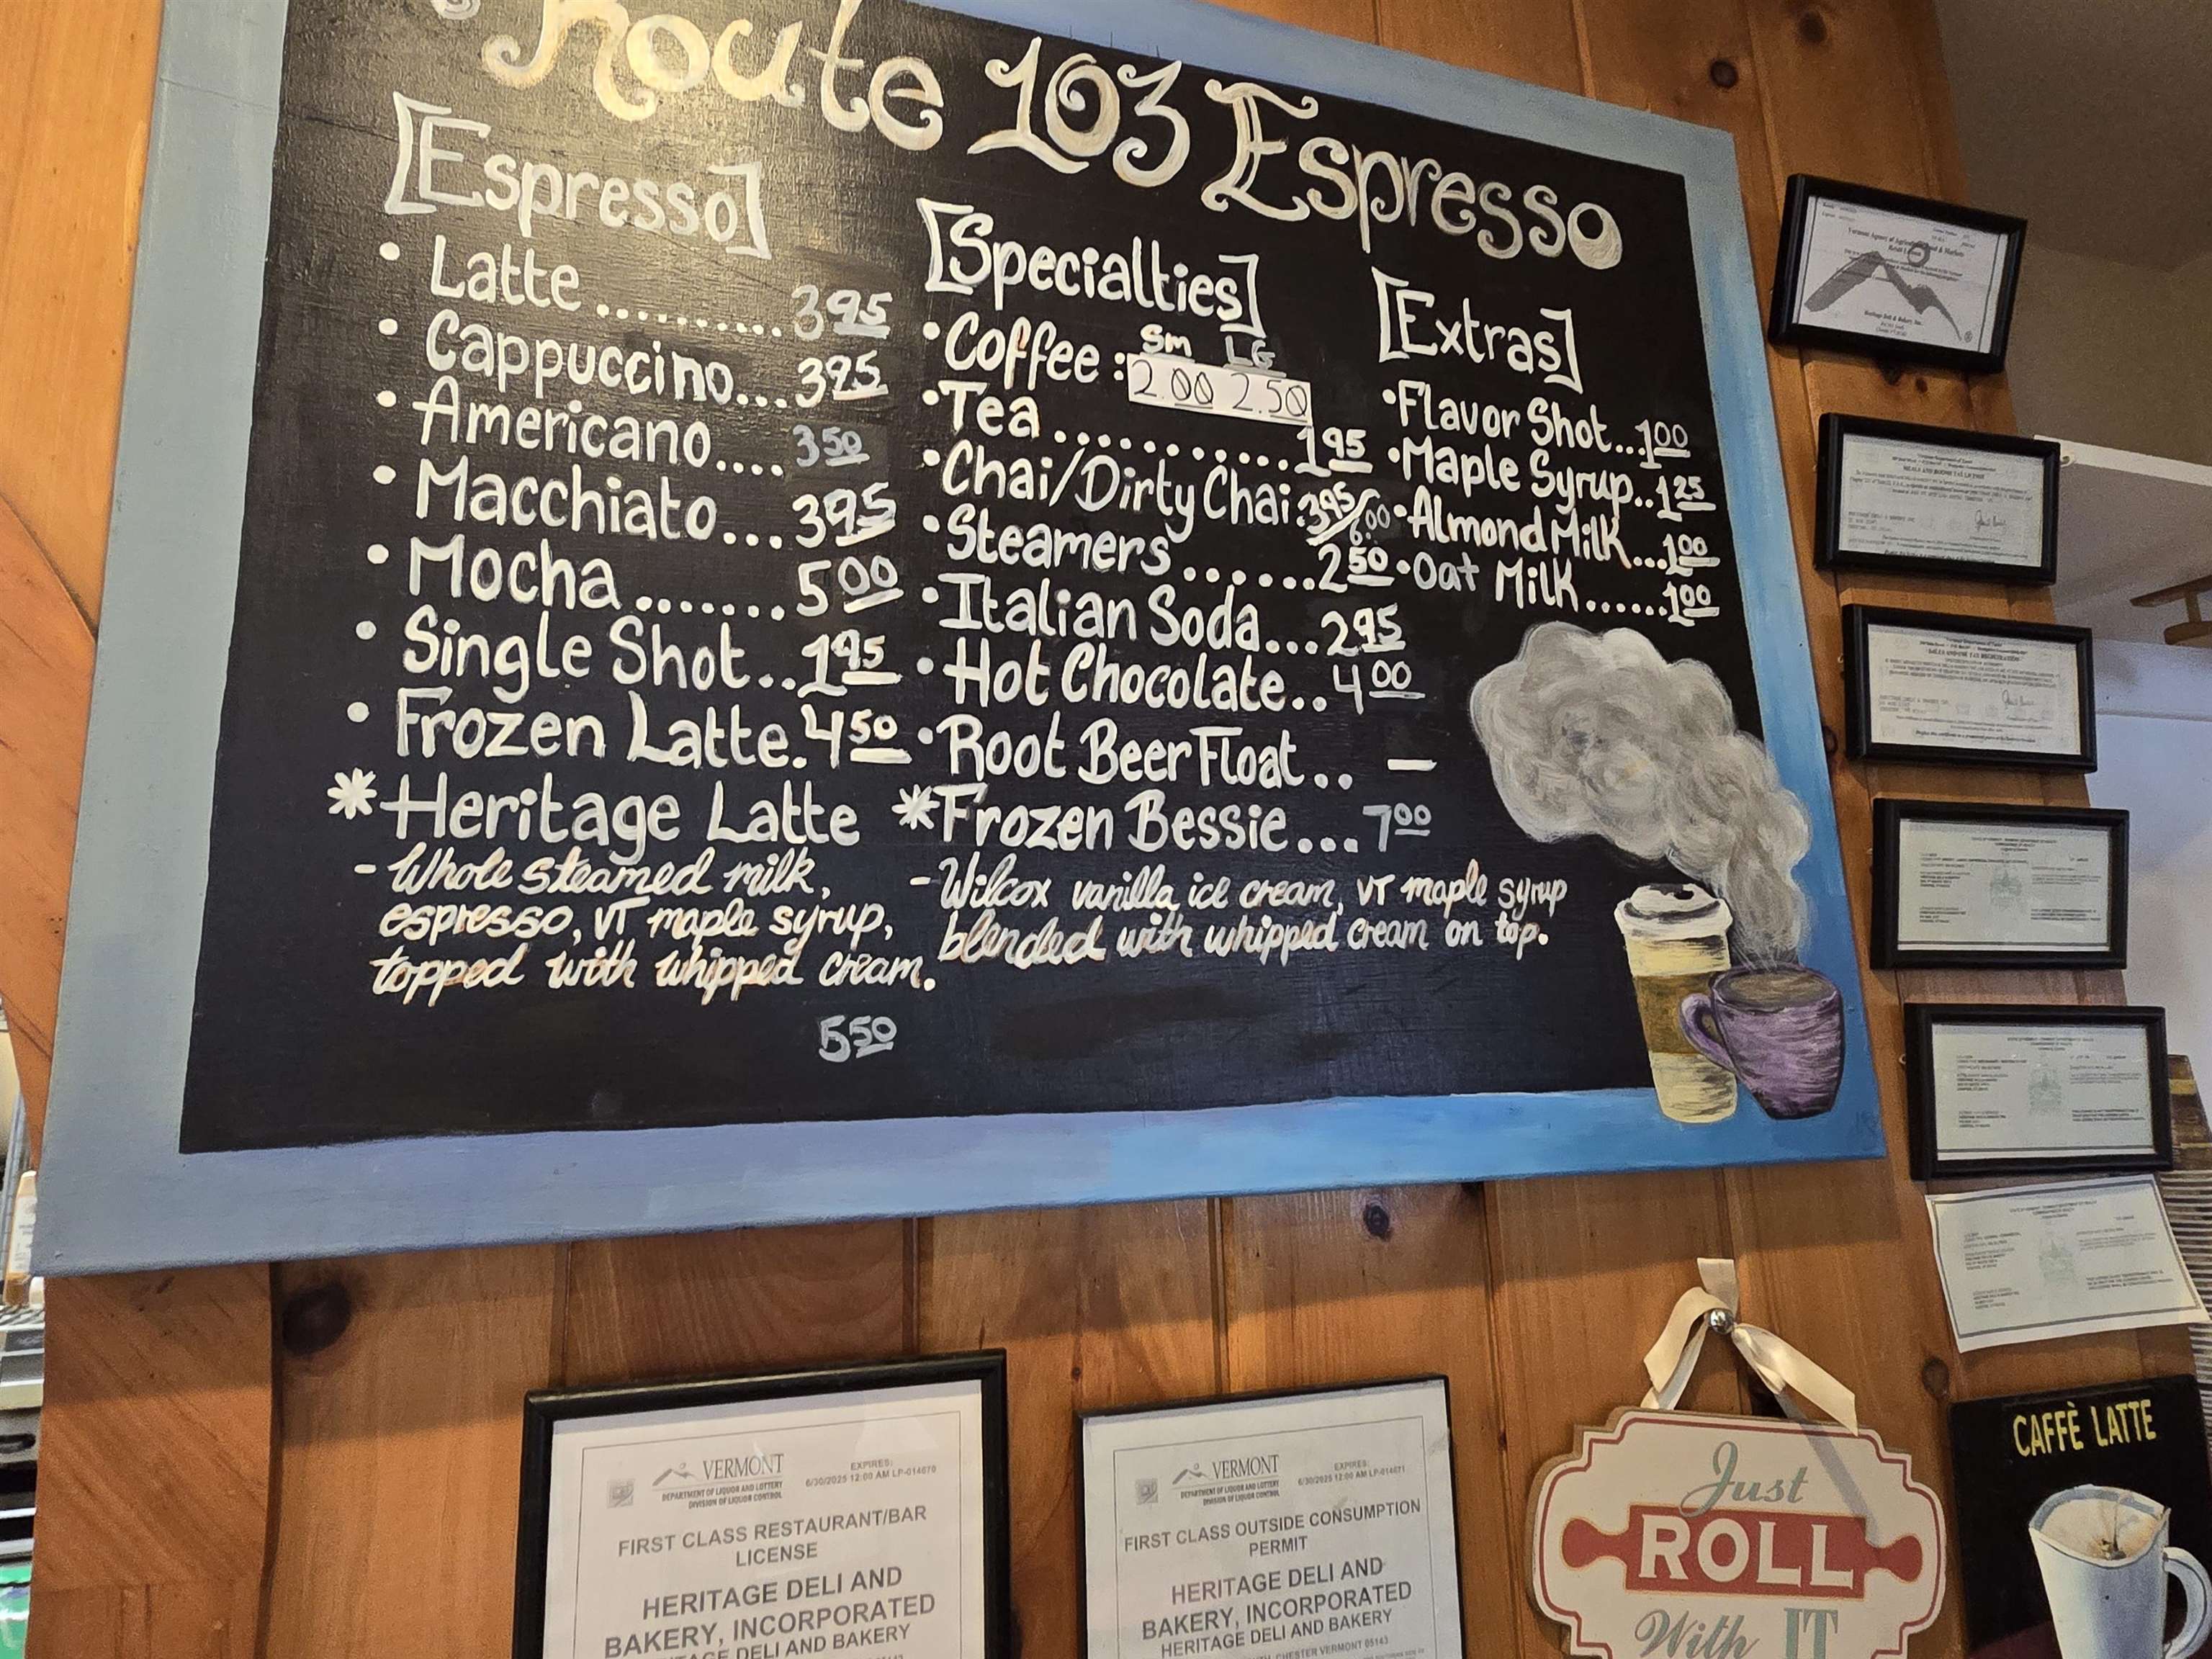 Route 103 Espresso
[Espresso]
• Latte .......... 3.95
• Cappuccino... 3.95
• Americano.... 3.50
• Macchiato... 3.95
• Mocha....... 5.00
• Single Shot.. 1.95
• Frozen Latte. 4.50
* Heritage Latte
- Whole steamed milk,
espresso, VT maple syrup,
topped with whipped cream.
5.50
[Specialties]
Sm LG
• Coffee: 2.00 2.50
• Tea .......... 1.95
• Chai/Dirty Chai: 3.95/6.00
• Steamers ....... 2.50
• Italian Soda... 2.95
• Hot Chocolate.. 4.00
• Root Beer Float.. —
* Frozen Bessie... 7.00
- Wilcox vanilla ice cream, VT maple syrup
blended with whipped cream on top.
[Extras]
• Flavor Shot... 1.00
• Maple Syrup.. 1.25
• Almond Milk... 1.00
• Oat Milk...... 1.00
VERMONT
DEPARTMENT OF LIQUOR AND LOTTERY
DIVISION OF LIQUOR CONTROL
EXPIRES:
6/30/2025 12:00 AM LP-014670
FIRST CLASS RESTAURANT/BAR
LICENSE
HERITAGE DELI AND
BAKERY, INCORPORATED
HERITAGE DELI AND BAKERY
VERMONT
DEPARTMENT OF LIQUOR AND LOTTERY
DIVISION OF LIQUOR CONTROL
EXPIRES:
6/30/2025 12:00 AM LP-014671
FIRST CLASS OUTSIDE CONSUMPTION
PERMIT
HERITAGE DELI AND
BAKERY, INCORPORATED
HERITAGE DELI AND BAKERY
CHESTER VERMONT 05143
Just
ROLL
With IT
CAFFÈ LATTE